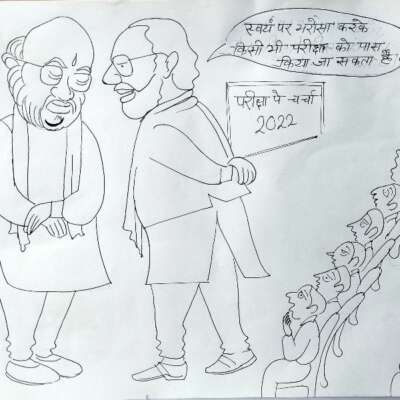 स्वयं पर भरोसा करके
किसी भी परीक्षा को पास
किया जा सकता है
परीक्षा पे चर्चा
2022